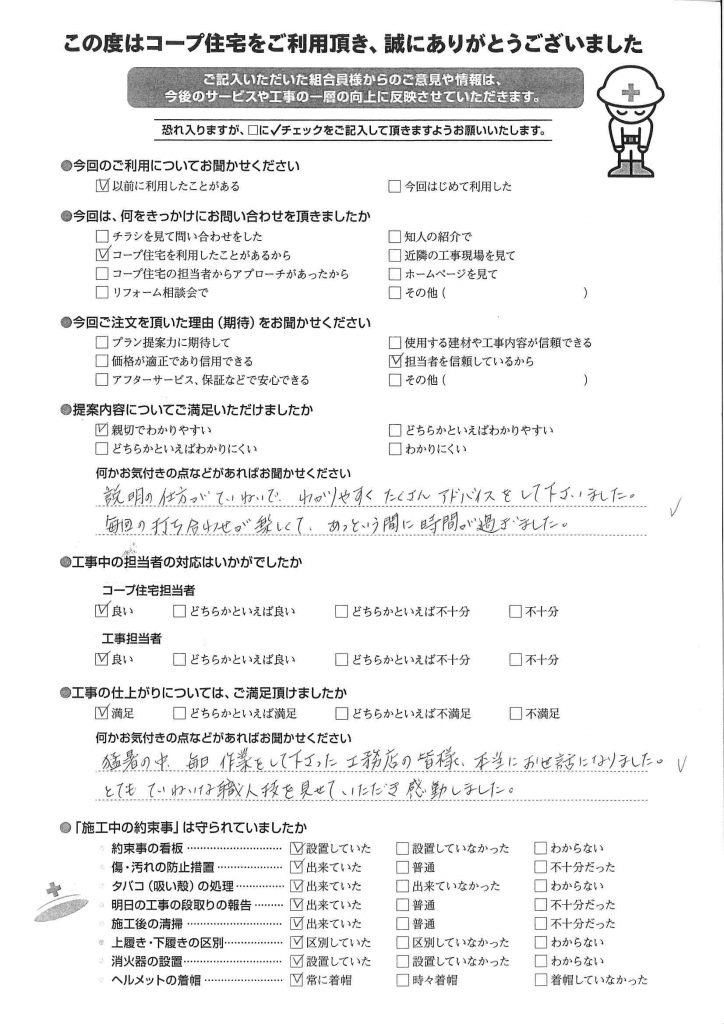 この度はコープ住宅をご利用頂き、誠にありがとうございました
ご記入いただいた組合員様からのご意見や情報は、
今後のサービスや工事の一層の向上に反映させていただきます。
恐れ入りますが、□に✓チェックをご記入して頂きますようお願いいたします。
●今回のご利用についてお聞かせください
☑以前に利用したことがある □今回はじめて利用した
●今回は、何をきっかけにお問い合わせを頂きましたか
□チラシを見て問い合わせをした □知人の紹介で
☑コープ住宅を利用したことがあるから □近隣の工事現場を見て
□コープ住宅の担当者からアプローチがあったから □ホームページを見て
□リフォーム相談会で □その他( )
●今回ご注文を頂いた理由(期待)をお聞かせください
□プラン提案力に期待して □使用する建材や工事内容が信頼できる
□価格が適正であり信用できる ☑担当者を信頼しているから
□アフターサービス、保証などで安心できる □その他( )
●提案内容についてご満足いただけましたか
☑親切でわかりやすい □どちらかといえばわかりやすい
□どちらかといえばわかりにくい □わかりにくい
何かお気付きの点などがあればお聞かせください
説明の仕方がていねいで、わかりやすくたくさんアドバイスをして下さいました。
毎回の打ち合わせが楽しくて、あっという間に時間が過ぎました。
●工事中の担当者の対応はいかがでしたか
コープ住宅担当者
☑良い □どちらかといえば良い □どちらかといえば不十分 □不十分
工事担当者
☑良い □どちらかといえば良い □どちらかといえば不十分 □不十分
●工事の仕上がりについては、ご満足頂けましたか
☑満足 □どちらかといえば満足 □どちらかといえば不満足 □不満足
何かお気付きの点などがあればお聞かせください
猛暑の中、毎日作業をして下さった工務店の皆様、本当にお世話になりました。
とてもていねいな職人技を見せていただき感動しました。
●「施工中の約束事」は守られていましたか
約束事の看板 ☑設置していた □設置していなかった □わからない
傷・汚れの防止措置 ☑出来ていた □普通 □不十分だった
タバコ(吸い殻)の処理 ☑出来ていた □出来ていなかった □わからない
明日の工事の段取りの報告 ☑出来ていた □普通 □不十分だった
施工後の清掃 ☑出来ていた □普通 □不十分だった
上履き・下履きの区別 ☑区別していた □区別していなかった □わからない
消火器の設置 ☑設置していた □設置していなかった □わからない
ヘルメットの着帽 ☑常に着帽 □時々着帽 □着帽していなかった